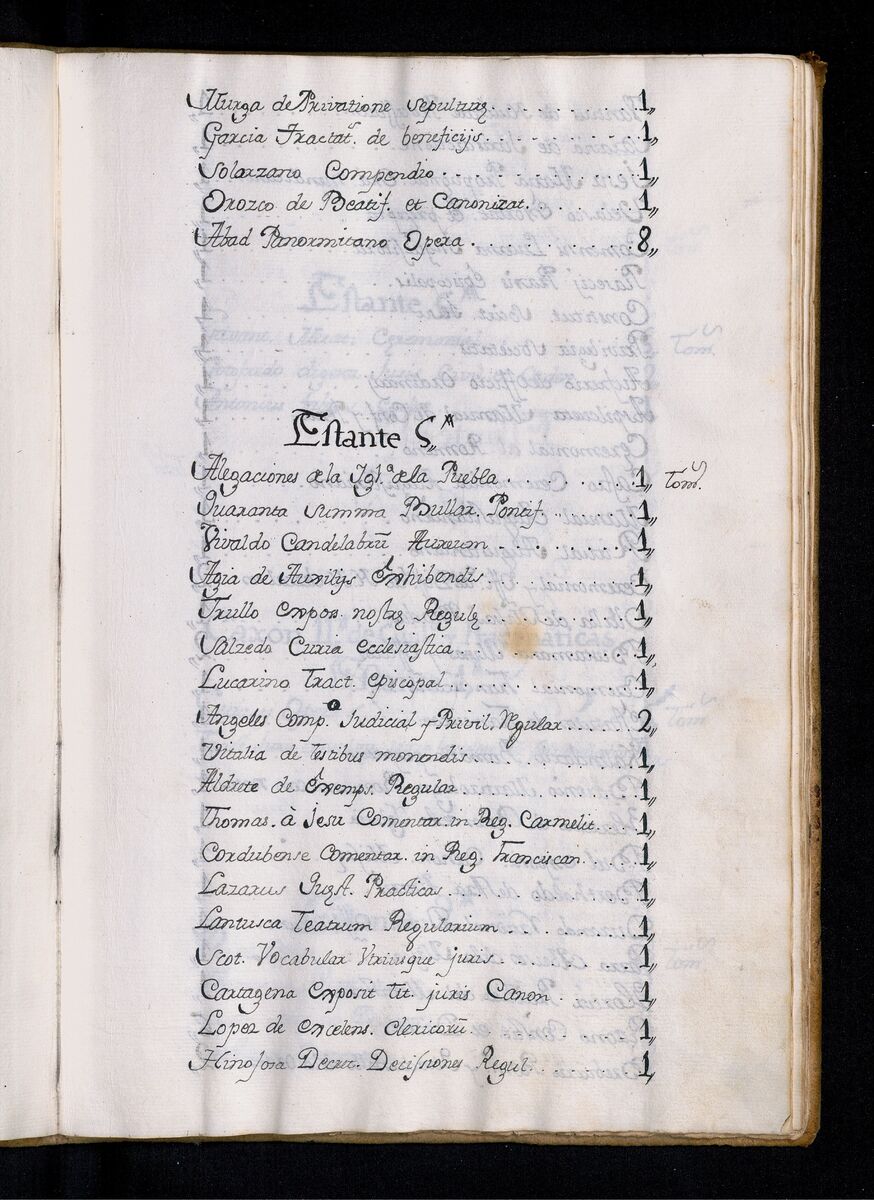 Murga de Privatione sepulturę. . . . . . . . . . . . 1,,
Garcia Tractat.s de beneficijs. . . . . . . . . . . . 1,,
Solarzano Compendio. . . . . . . . . . . . 1,,
Orozco de Beatif. et Canonizat. . . . . . . . . 1,,
Abad Panormitano Opera . . . . . . . . . . . 8,,
Estante 5,,A
Alegaciones dela Igl.a dela Puebla . . . . . . . 1,, Tom.s
Quaranta Summa Bullar. Pontif. . . . . . . . 1,,
Vivaldo Candelabrũ Aureum . . . . . . . . 1,,
Agia de Auxilijs Exhibendis . . . . . . . . . 1,,
Trullo expos. nostrę Regulę . . . . . . . . . 1,,
Salzedo Curia ecclesiastica . . . . . . . . . . 1,,
Lucarino Tract. episcopal . . . . . . . . . . 1,,
Angeles Comp.o Judicial y Privil. Regular . . . . . 2,,
Vitalia de Testibus monendis . . . . . . . . . 1,,
Aldrete de Exemps. Regular . . . . . . . . . . 1,,
Thomas. à Jesu Comentar. in Reg. Carmelit. . . . 1,,
Cordubense Comentar. in Reg. Franciscan. . . . . 1,,
Lazarus Quęst. Practicas. . . . . . . . . . . 1,,
Lantusca Teatrum Regularium . . . . . . . . 1,,
Scot. Vocabular Vtriusque juris . . . . . . . . 1,,
Cartagena exposit tit. juris Canon . . . . . . . 1,,
Lopez de excelens. clericorũ. . . . . . . . . . 1,,
Hinojosa Decret. Decissiones Regul. . . . . . . 1,,